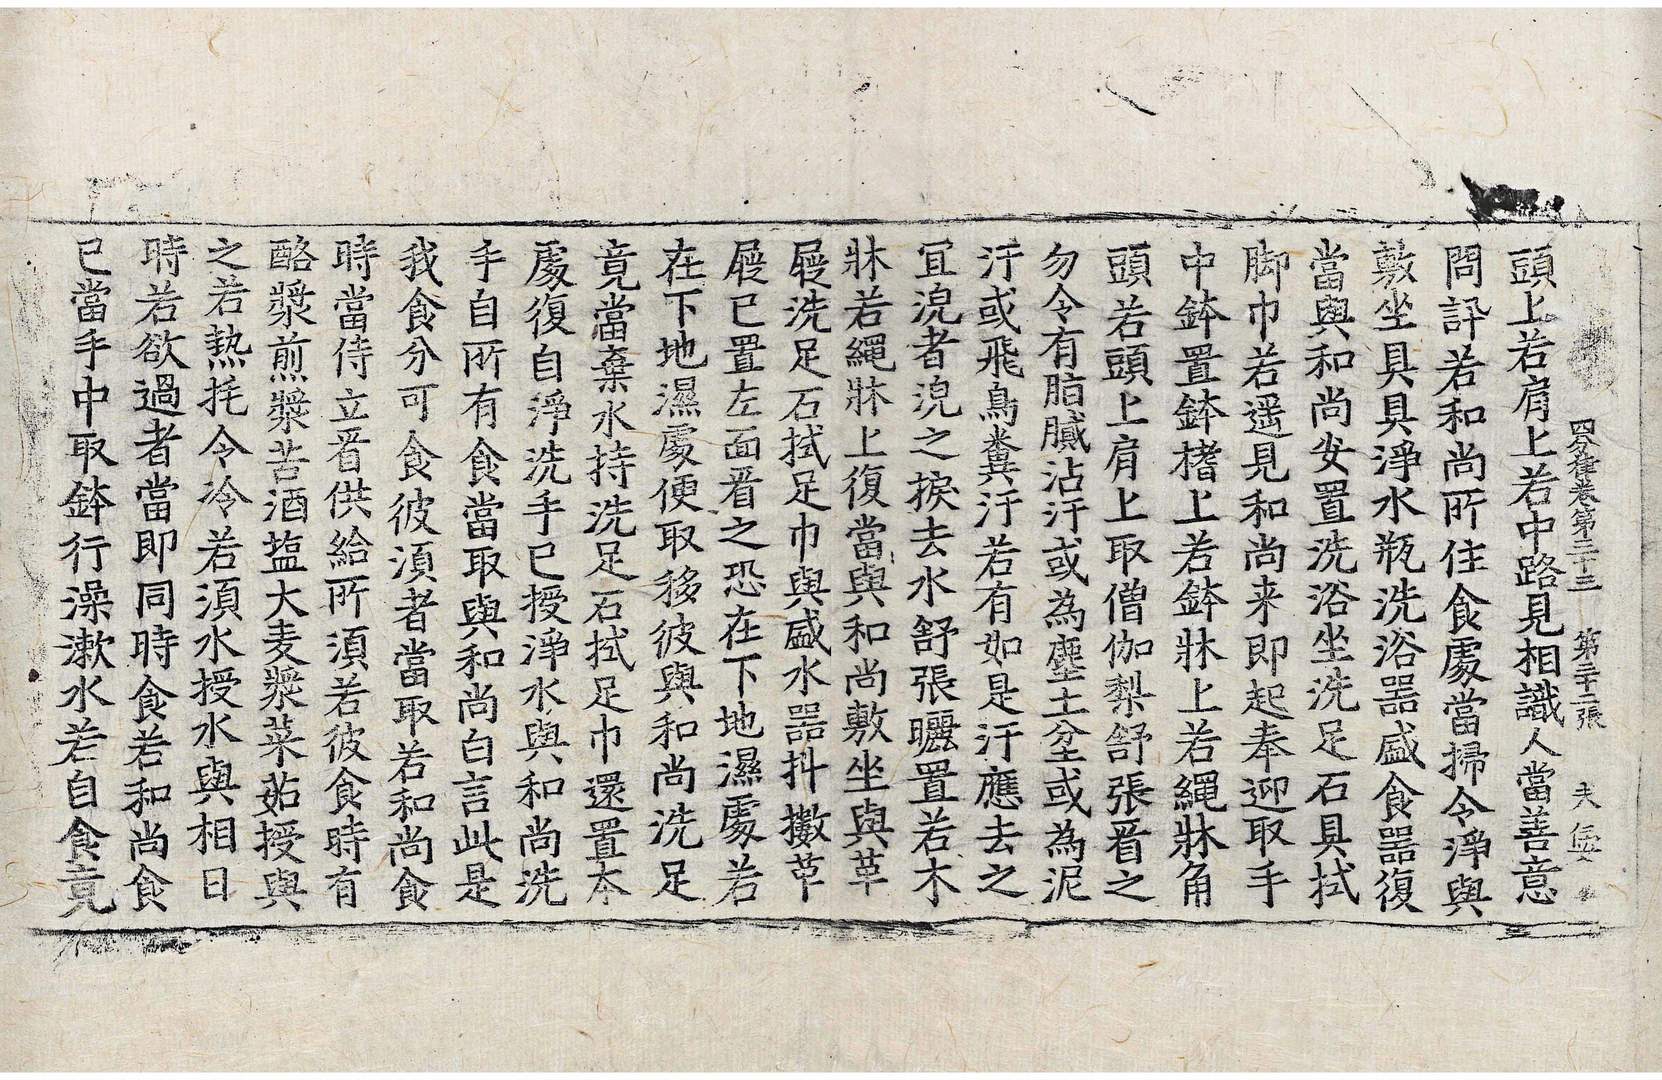 四分律卷第三十三　第三十二張　夫
頭上若肩上若中路見相識人當善意
問訊若和尚所住食處當掃令淨與
敷坐具具淨水瓶洗浴器盛食器復
當與和尚安置洗浴坐洗足石具拭
脚巾若遥見和尚来即起奉迎取手
中鉢置鉢榰上若鉢牀上若繩牀角
頭若頭上肩上取僧伽梨舒張㸔之
勿令有脂膩沾汙或為塵土坌或為泥
汙或飛鳥糞汙若有如是汙應去之
冝浣者浣之捩去水舒張曬置若木
牀若繩牀上復當與和尚敷坐與革
屣洗足石拭足巾與盛水器抖擻革
屣已置左面㸔之恐在下地濕處若
在下地濕處便取移彼與和尚洗足
竟當棄水持洗足石拭足巾還置本
處復自淨洗手已授淨水與和尚洗
手自所有食當取與和尚白言此是
我食分可食彼湏者當取若和尚食
時當侍立㸔供給所湏若彼食時有
酪漿煎漿苦酒塩大麦漿菜茹授與
之若熱扥令冷若湏水授水與相日
時若欲過者當即同時食若和尚食
已當手中取鉢行澡漱水若自食竟